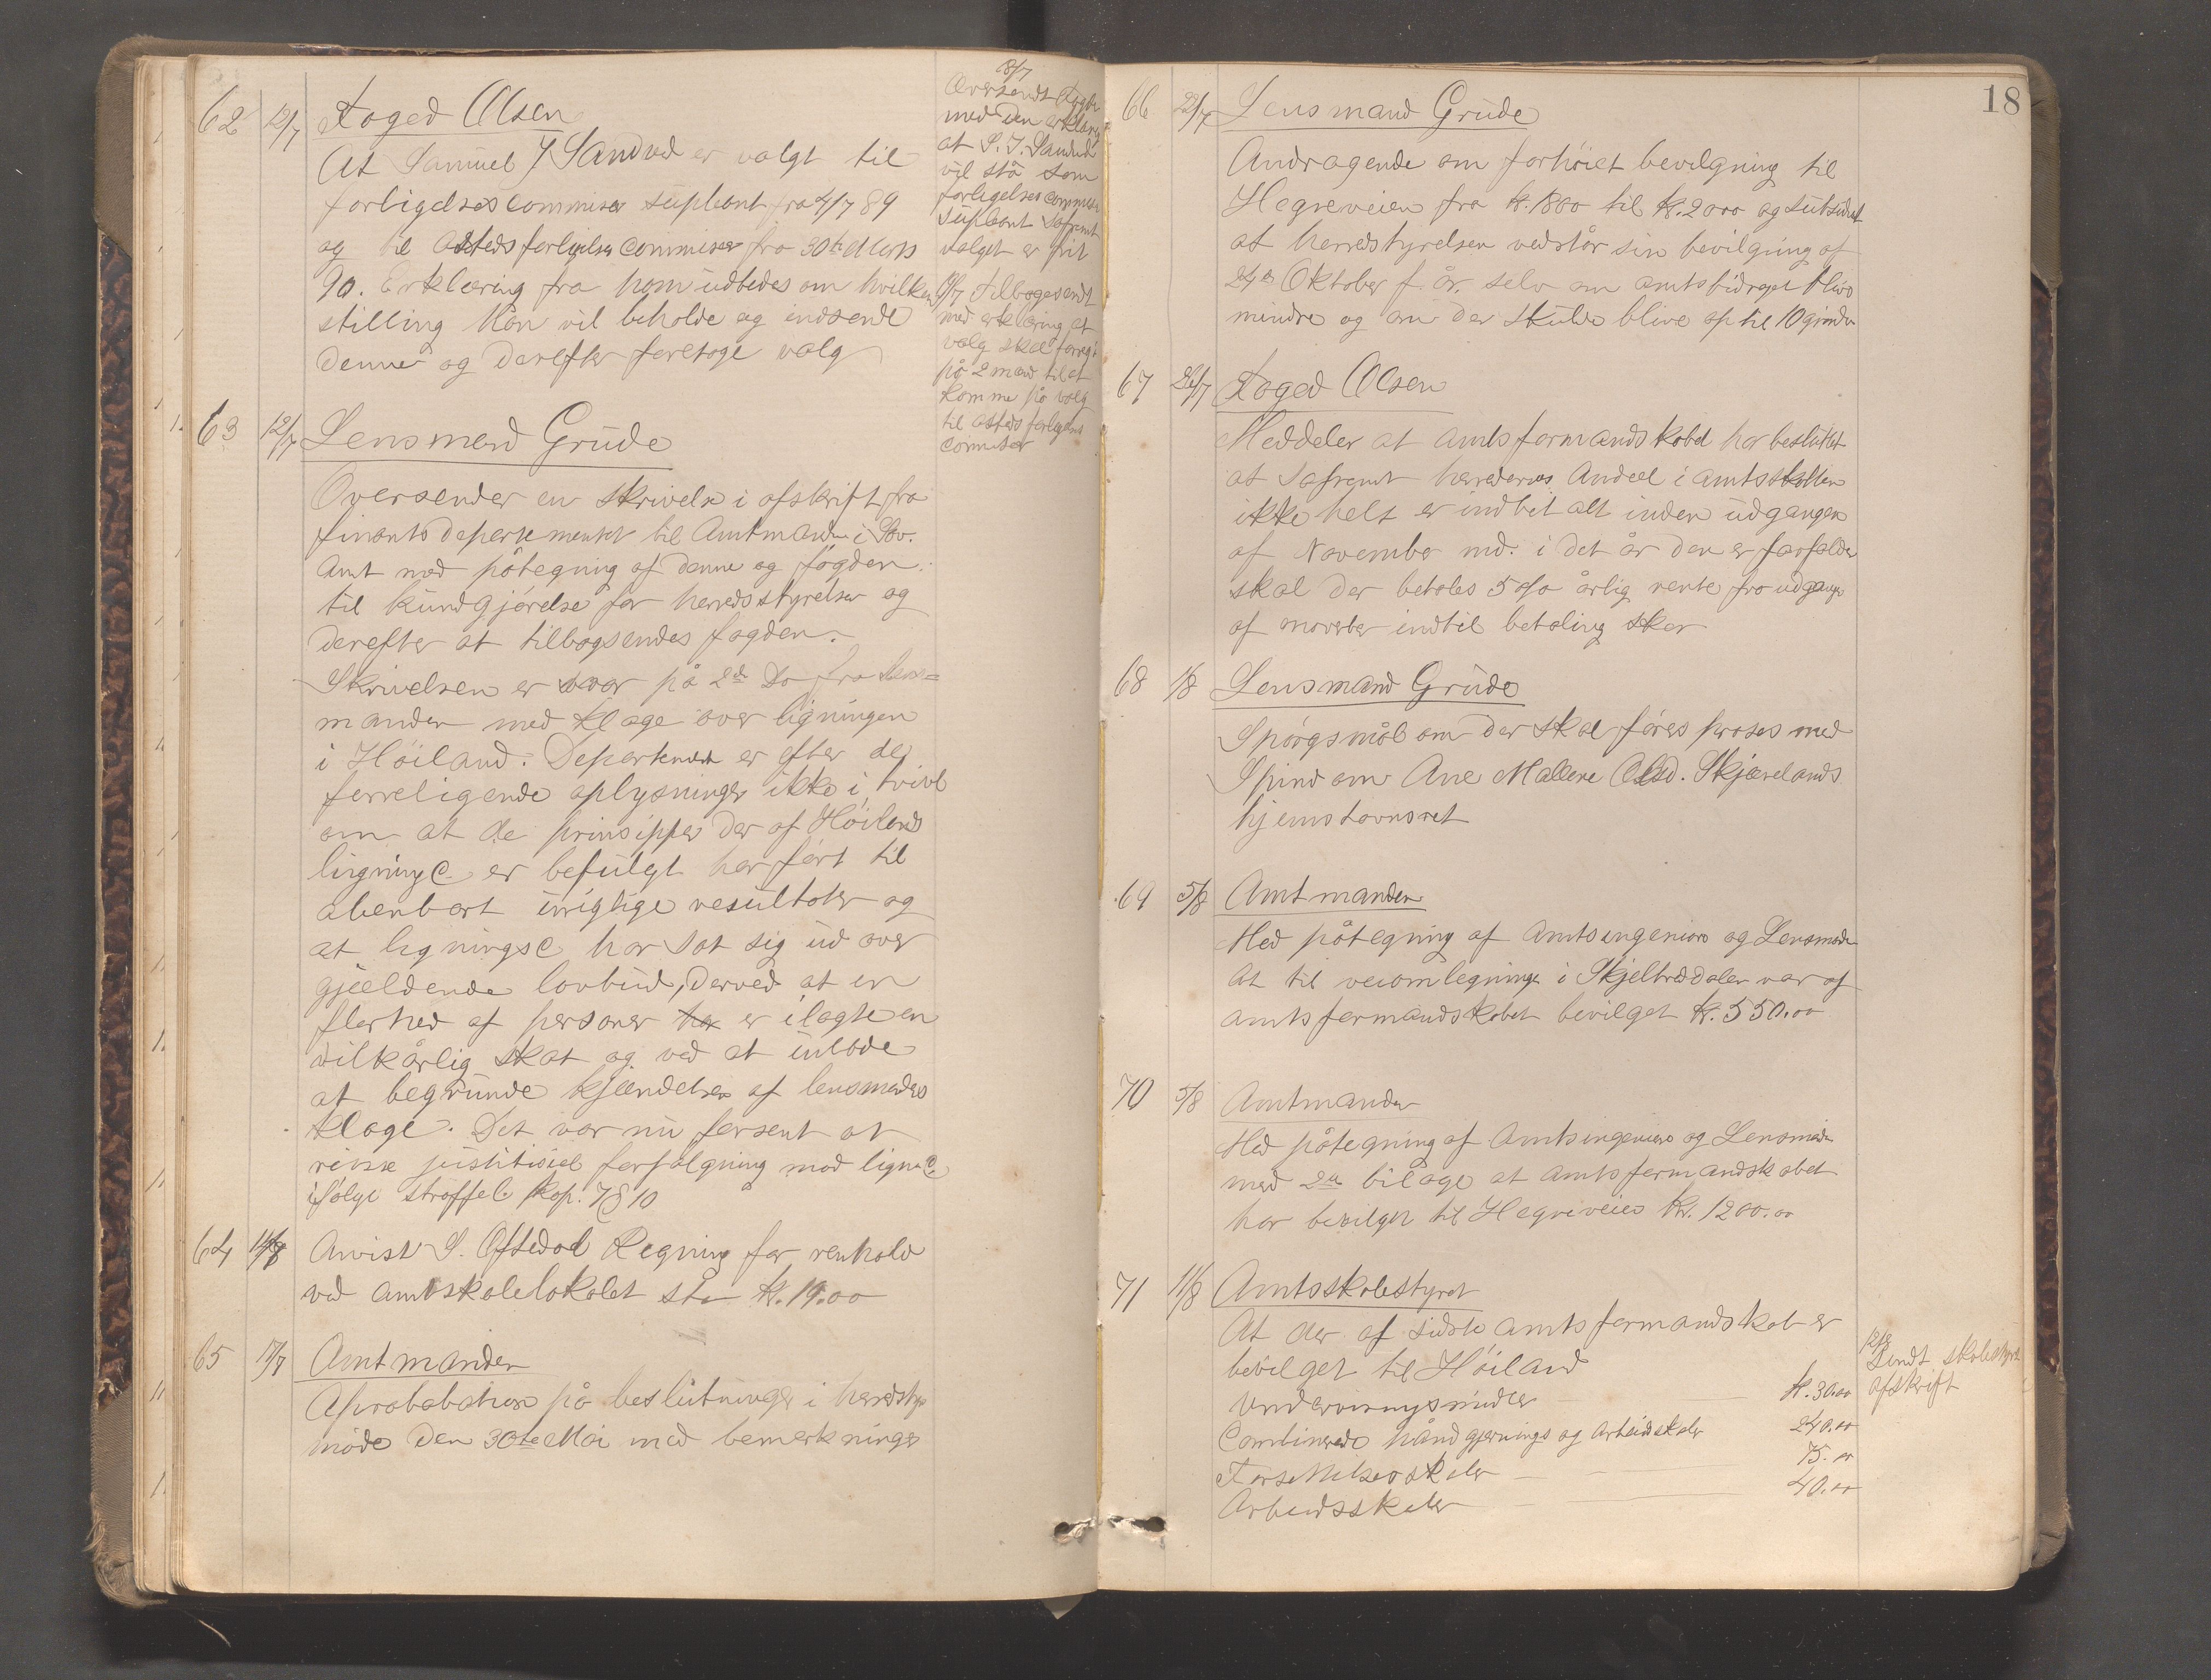 62 12/7 Foged Olsen
At Samuel J Sandved er valgt til
forligelsescommisær supleant fra 4/7 89
og til Åstedsforligelsescommisær fra 30te Marts
90. Erklæring fra ham udbedes om hvilken
stilling han vil beholde og indsende
denne og derefter foretage valg
18/7
Oversendt Fogden
med den erklæring
at S. J. Sandved
vil stå som
forligelsescommisær
Supleant såfremt
valget er frit
tilbagesendt
med erklæring at
valg skal foregå
på 2 mænd til at
komme på valg
til åstedsforligelses
comisær
63 12/7 Lensmand Grude
Oversender en skrivelse i afskrift fra
finantsdepartementet til Amtmanden i Stav.
Amt med påtegning af denne og fogden
til kundgjørelse for herredsstyrelsen og
derefter at tilbagsendes fogden.
Skrivelsen er svar på 2de Do fra Lens=
manden med klage over ligningen
i Höiland. Departementet er efter de
forreligende oplysninger ikke i tvivl
om at de prinsipper der af Höilands
ligningsc er befulgt har ført til
åbenbart urigtige resultater og
at ligningsc har sat sig ud over
gjældende lovbud, derved at en
flerhed af personer er ilagte en
vilkårlig skat og ved at undlade
at begrunde kjændelsen af lensmandens
klage. Det var nu forsent at
reise justitiel forfølgning mod lignc
ifølge straffel. kap. 7 § 10
64 Anvist S. Aftedal Regning for renhold
ved amtskolelokalet stor kr. 19.00
65 17/7 Amtmanden
Aprobabation på beslutninger i herredsstyre
møde den 30te Mai med bemerkninger
18
66 22/7 Lensmand Grude
Andragende om forhöiet bevilgning til
Hegreveien fra kr. 1800 til kr. 2000 og subsidiert
at herredstyrelsen vedstår sin bevilgning af
24de Oktober f. år. selv om amtsbidraget blive
mindre og om der skulde blive op til 10 grinder
67 26/7 Foged Olsen
Meddeler at Amtsformandskabet har besluttet
at såfremt herredernes Andeel i amtsskatten
ikke helt er indbetalt inden udgangen
af November md. i det år den er forfalden
skal der betales 5 o/o årlig rente fra udgange
af november indtil betaling sker
68 1/8 Lensmand Grude
Spørgsmål om der skal føres proses med
Spind om Ane Mallene Olsd. Skjævelands
hjemstavnsret
69 5/8 Amtmanden
Med påtegning af Amtsingeniøren og Lensmanden
At til veiomlegninge i Skjeltreddalen var af
amtsformandskabet bevilget kr. 550.00
70 5/8 Amtmanden
Med påtegning af Amtsingeniøren og Lensmanden
med 2de bilage at Amtsformandskabet
har bevilget til Hegreveien kr. 1200.00
71 11/8 Amtsskolestyret
At der af sidste amtsformandskab er
bevilget til Höiland
Undervisningsmidler kr. 30.00
Combinerede håndgjernings og Arbeidsskoler 240.00
Forsettelsesskoler 75.00
Arbeidsskoler 40.00
12/8
Sendt skolestyret
afskrift